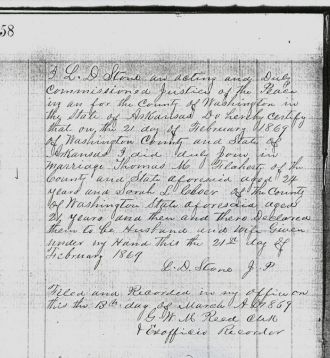 58
I L. D. Stone an acting and Duly
Commissioned Justice of the Peace
in an for the County of Washington in
the State of Arkansas Do hereby Certify
that on the 21 day of February 1869
of Washington County and State of
Arkansas I did duly Join in
marriage Thomas M. of the
County and State aforesaid aged 24
years and Sarah L. of the County
of Washington State aforesaid aged
21 years and then and there Declared
them to be Husband and wife Given
under my Hand this the 21st day of
February 1869
L. D. Stone J. P.
Filed and Recorded in my office on
this the 13th day of March A D 1869
G. W. M. Reed Clk
& Exofficio Recorder